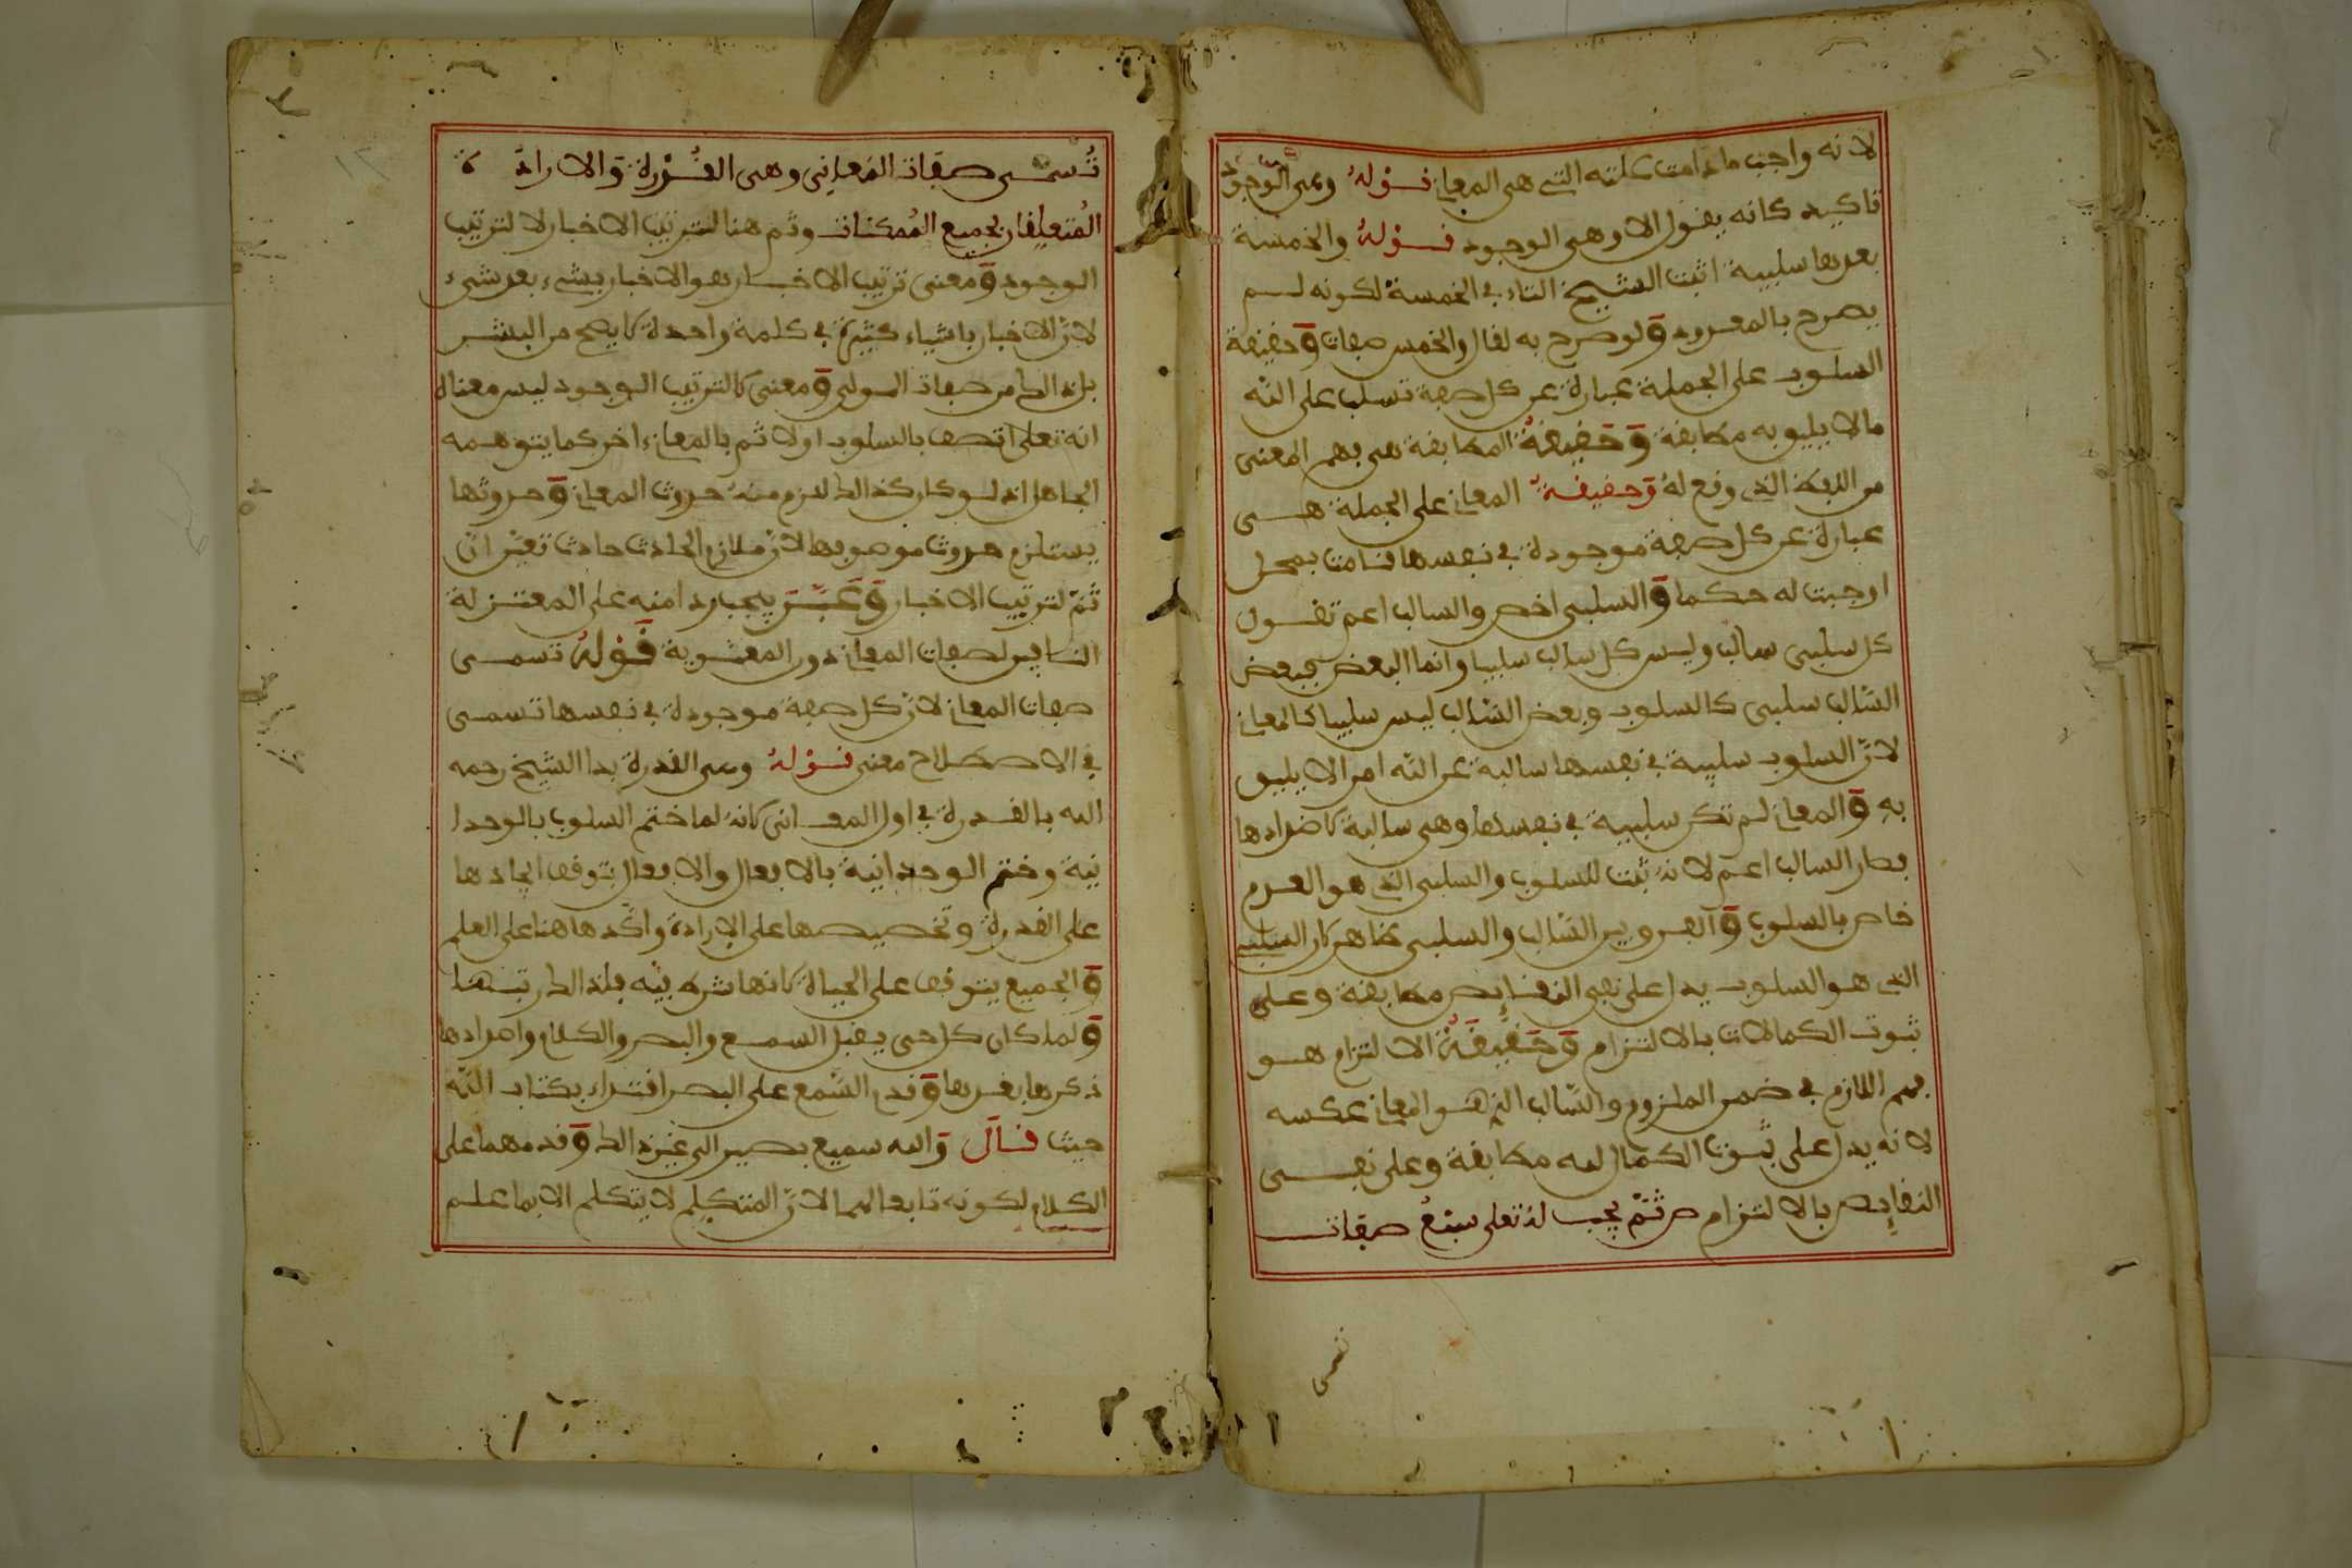 لانه واجب مادامت علته التي هي المعاني قوله وهي الوجود
تاكيد كانه يقول الاولى وهي الوجود قوله والخمسة
بعدها سلبية اثبت الشيخ التاء في الخمسة لكونه لم
يصرح بالمعدود ولو صرح به لقال والخمس صفات وحقيقة
السلوب على الجملة عبارة عن كل صفة تسلب على الله
مالا يليق به مطابقة وحقيقة المطابقة هي فهم المعنى
من اللفظ الذي وضع له وحقيقة المعاني على الجملة هي
عبارة عن كل صفة موجودة في نفسها قامت بمحل
اوجبت له حكما والسلبي اخص والسالب اعم تقول
كل سلبي سالب وليس كل سالب سلبيا وانما البعض فبعض
السالب سلبي كالسلوب وبعض السالب ليس سلبيا كالمعاني
لان السلوب سلبية في نفسها سالبة عن الله امرا لا يليق
به والمعاني لم تكن سلبية في نفسها وهي سالبة لاضدادها
فصار السالب اعم لانه ثبت للسلوب والسلبي الذي هو العدم
خاص بالسلوب والفرق بين السالب والسلبي ظاهر لان السلبي
الذي هو السلوب يدل على نفي النقايص مطابقة وعلى
ثبوت الكمالات بالالتزام وحقيقة الالتزام هو
فهم اللازم في ضمن الملزوم والسالب الذي هو المعاني عكسه
لانه يدل على ثبوت الكمال لله مطابقة وعلى نفي
النقايص بالالتزام ص ثم يجب له تعلى سبع صفات
تسمى صفات المعاني وهي القدرة والارادة
المتعلقان بجميع الممكنات وثم هنا لترتيب الاخبار لا لترتيب
الوجود ومعنى ترتيب الاخبار هو الاخبار بشيء بعد شيء
لان الاخبار باشياء كثيرة في كلمة واحدة لا يصح من البشر
بل ذالك من صفات المولى ومعنى لا لترتيب الوجود ليس معناه
انه تعلى اتصف بالسلوب اولا ثم بالمعاني اخر كما يتوهمه
الجاهل اذ لو كان كذالك لزم منه حدوث المعاني وحدوثها
يستلزم حدوث موصوفها لان ملازم الحادث حادث تعين ان
ثم لترتيب الاخبار وعبر بيجب ردا منه على المعتزلة
النافين لصفات المعاني دون المعنوية قوله تسمى
صفات المعاني لان كل صفة موجودة في نفسها تسمى
في الاصطلاح معنى قوله وهي القدرة بدا الشيخ رحمه
الله بالقدرة في اول المعاني كانه لما ختم السلوب بالوحدا
نية وختم الوحدانية بالافعال والافعال يتوقف ايجادها
على القدرة وتخصيصها على الارادة واكدها هنا على العلم
والجميع يتوقف على الحياة لانها شرط فيه فلذالك رتبها
ولما كان كل حي يقبل السمع والبصر والكلام واضدادها
ذكرها بقربها وقدم السمع على البصر اقتداء بكتاب الله
حيث قال والله سميع بصير الى غير ذالك وقدمهما على
الكلام لكونه تابعا لهما لان المتكلم لا يتكلم الا بما علم